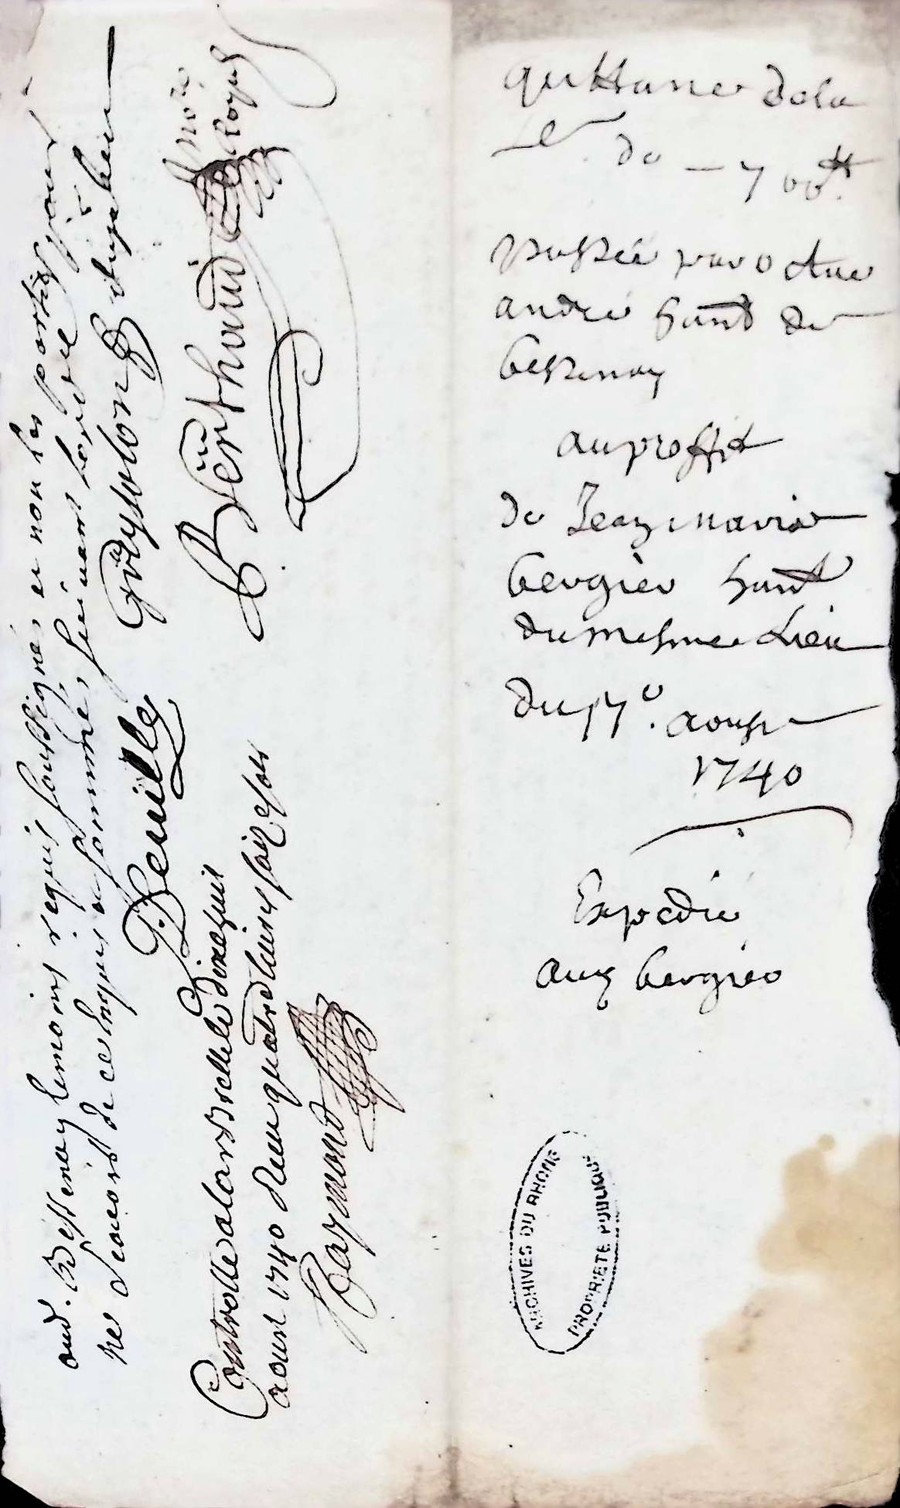 aud. Bessenay temoins requis soussignés et non les parties pour
ne scavoir de ce enquis et sommés suivant l'ord
Deville Guysolon
Berthaud no.re Royal
Controllé a larbrelle le dixhuit
aoust 1740 Receu quatre livres seize sols
Raymond
quittance dela
so.e de – 700 tt.
passée par otue
andré habnt de
bessenay
au proffit
de Jean marie
bergier habnt
du mesme Lieu
du 17e. aoust
1740
Expedié
aux bergier
ARCHIVES DU RHONE
PROPRIETE PUBLIQUE